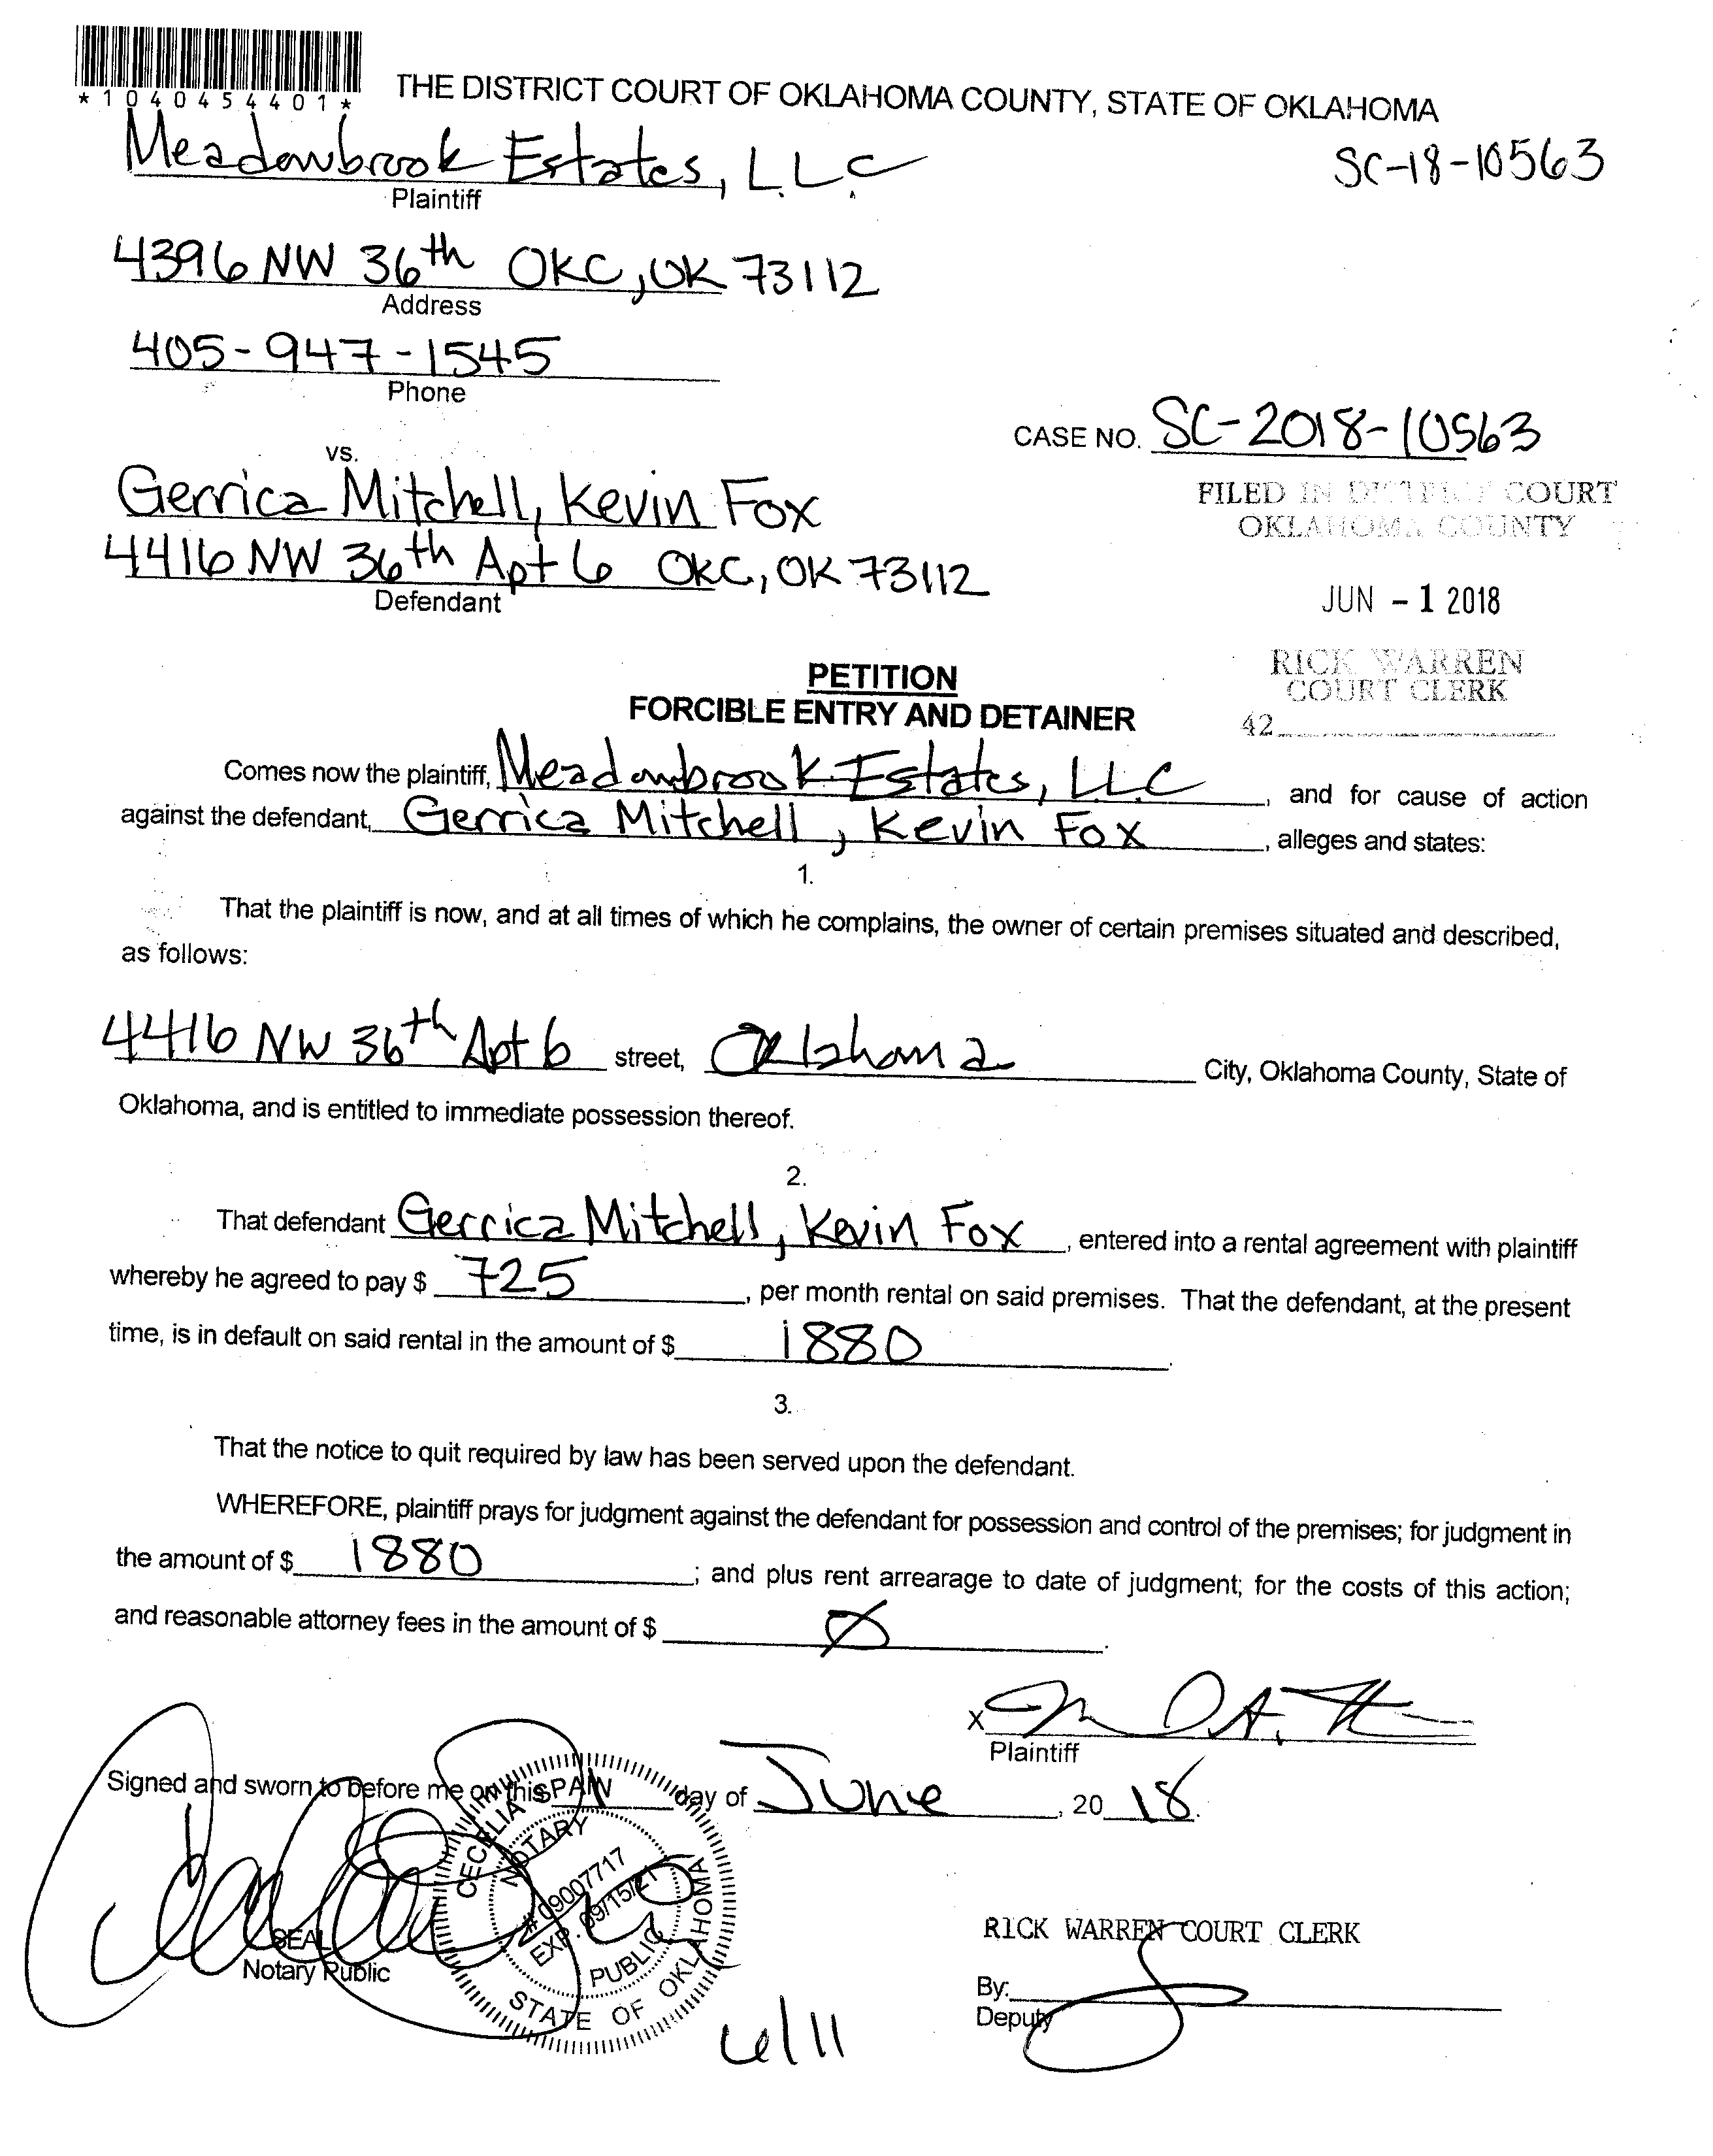 *1040454401*
THE DISTRICT COURT OF OKLAHOMA COUNTY, STATE OF OKLAHOMA
Meadowbrook Estates, LLC
SC-18-10563
Plaintiff
4396 NW 36th OKC, OK 73112
Address
405-947-1545
Phone
CASE NO. SC-2018-10563
vs.
FILED IN DISTRICT COURT
OKLAHOMA COUNTY
Gerrica Mitchell, Kevin Fox
4416 NW 36th Apt 6 OKC, OK 73112
Defendant
JUN - 1 2018
RICK WARREN
COURT CLERK
42
PETITION
FORCIBLE ENTRY AND DETAINER
Comes now the plaintiff, Meadowbrook Estates, LLC, and for cause of action
against the defendant, Gerrica Mitchell, Kevin Fox, alleges and states:
1.
That the plaintiff is now, and at all times of which he complains, the owner of certain premises situated and described,
as follows:
4416 NW 36th Apt 6 street, Oklahoma City, Oklahoma County, State of
Oklahoma, and is entitled to immediate possession thereof.
2.
That defendant Gerrica Mitchell, Kevin Fox, entered into a rental agreement with plaintiff
whereby he agreed to pay $ 725, per month rental on said premises. That the defendant, at the present
time, is in default on said rental in the amount of $ 1880.
3.
That the notice to quit required by law has been served upon the defendant.
WHEREFORE, plaintiff prays for judgment against the defendant for possession and control of the premises; for judgment in
the amount of $ 1880; and plus rent arrearage to date of judgment; for the costs of this action;
and reasonable attorney fees in the amount of $ Ø.
X
Plaintiff
Signed and sworn to before me on this day of June, 20 18.
CECELIA SPAIN
NOTARY
# 09007717
EXP. 09/15/21
PUBLIC
STATE OF OKLAHOMA
SEAL
Notary Public
RICK WARREN COURT CLERK
By:
Deputy
6/11